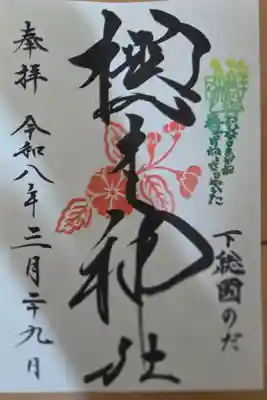 下総國のだ
櫻木神社
奉拝 令和八年三月二十九日